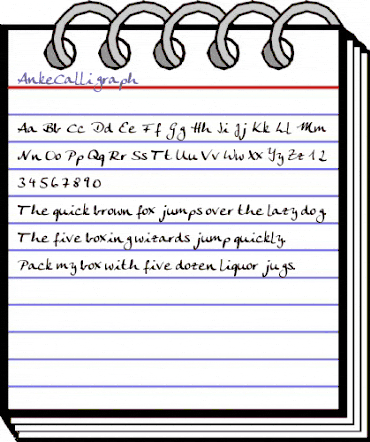 AnkeCalligraph
Aa Bb Cc Dd Ee Ff Gg Hh Ii Jj Kk Ll Mm
Nn Oo Pp Qq Rr Ss Tt Uu Vv Ww Xx Yy Zz 1 2
3 4 5 6 7 8 9 0
The quick brown fox jumps over the lazy dog
The five boxing wizards jump quickly.
Pack my box with five dozen liquor jugs.